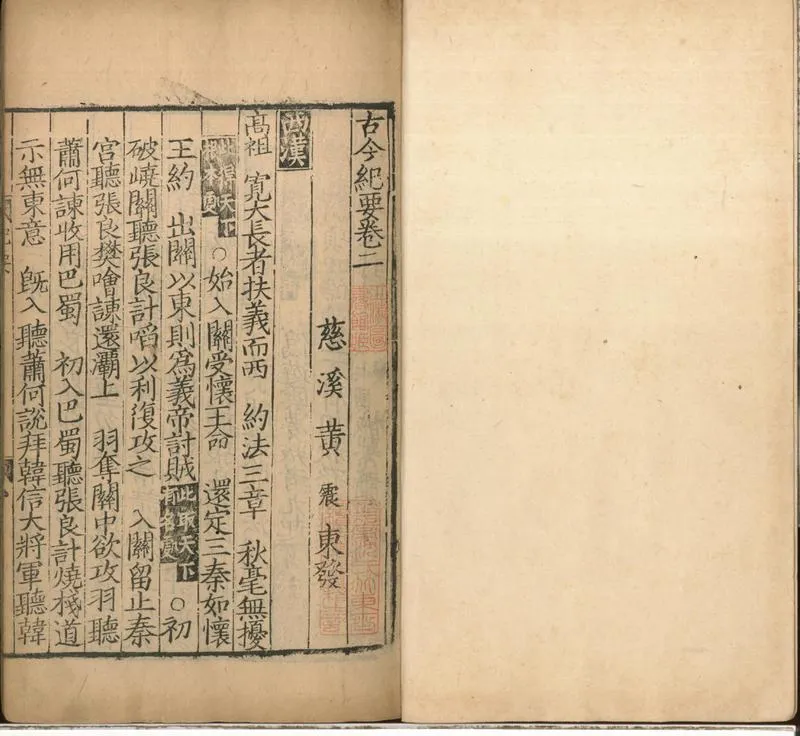 古今紀要卷二
慈溪黃震東發
西漢
高祖 寬大長者扶義而西 約法三章 秋毫無擾
此得天下根本䖏 ○始入關受懷王命 還定三秦如懷
王約 出關以東則為義帝討賊 此取天下有名䖏 ○初
破嶢關聽張良計啗以利復攻之 入關留止秦
宮聽張良樊噲諫還灞上 羽奪關中欲攻羽聽
蕭何諫收用巴蜀 初入巴蜀聽張良計燒棧道
示無東意 旣入聽蕭何說拜韓信大將軍聽韓